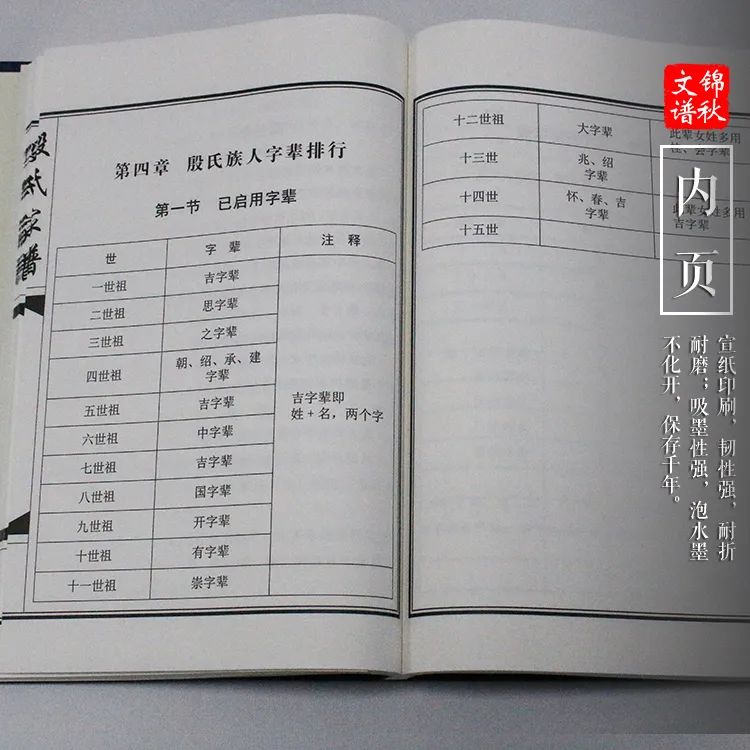 殷氏家谱
第四章 殷氏族人字辈排行
第一节 已启用字辈
世 字辈 注释
一世祖 吉字辈
二世祖 思字辈
三世祖 之字辈
四世祖 朝、绍、承、建
字辈
五世祖 吉字辈
六世祖 中字辈
七世祖 吉字辈
八世祖 国字辈
九世祖 开字辈
十世祖 有字辈
十一世祖 崇字辈
吉字辈即
姓+名，两个字
十二世祖 大字辈 此辈女姓多用
字辈
十三世 兆、绍
字辈
十四世 怀、春、吉
字辈 此辈女姓多用
吉字辈
十五世
锦秋
文谱
内页
宣纸印刷，韧性强，耐折
耐磨；吸墨性强，泡水墨
不化开，保存千年。